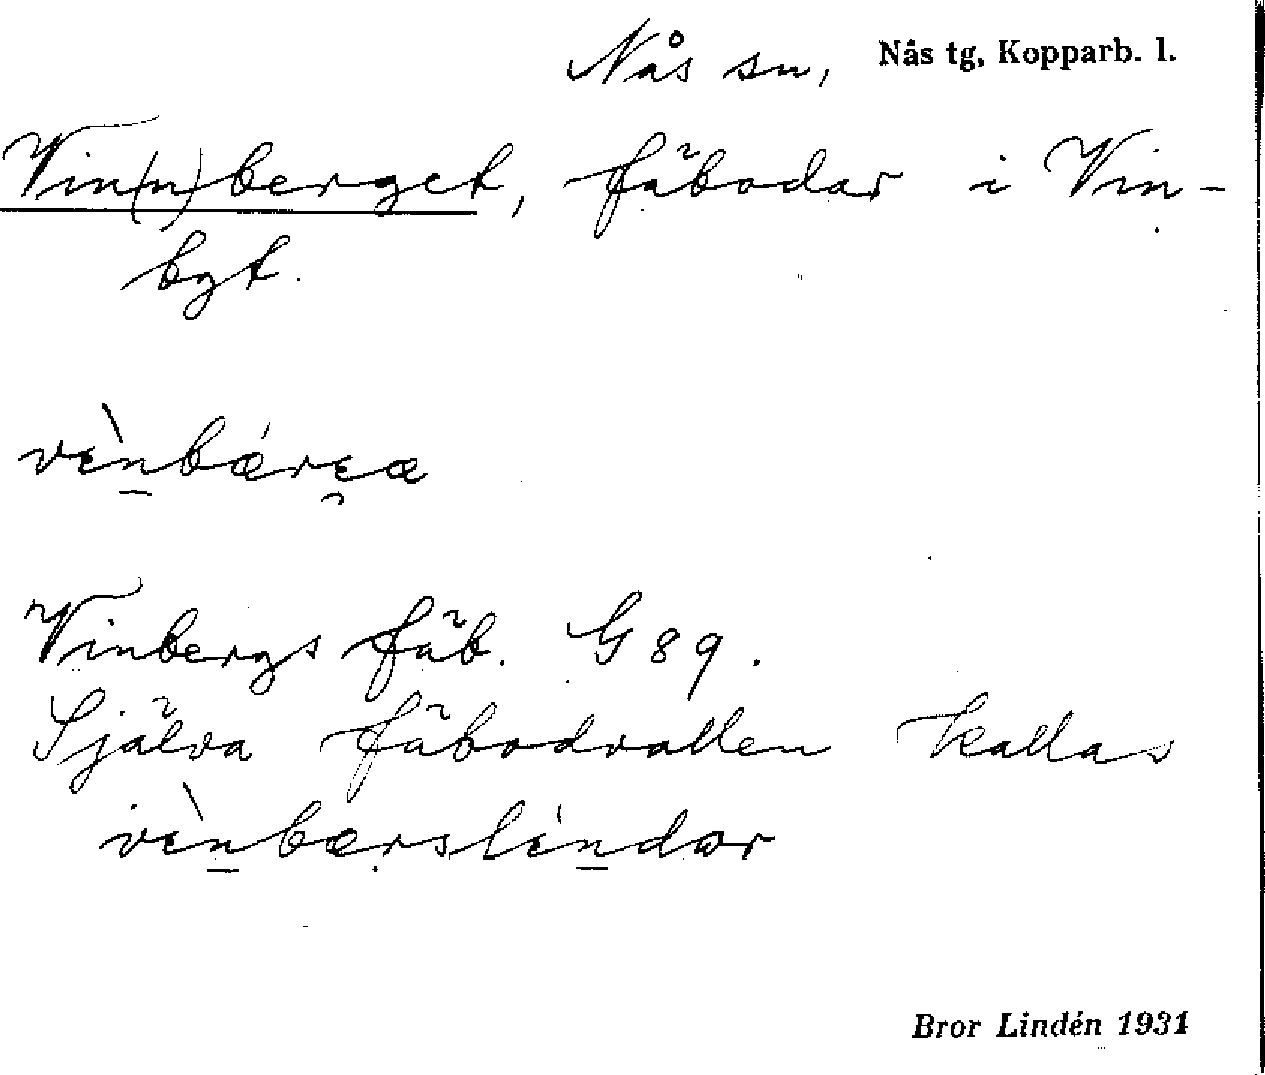 Nås sn, Nås tg, Kopparb. l.
Vin(n)berget, fäbodar i Vin-
bgt.
vὲn̲bǽrɛ̯æ
Vinbergs fäb. G 89.
Själva fäbodvallen kallas
vὲn̲bærslέn̲dar
Bror Lindén 1931